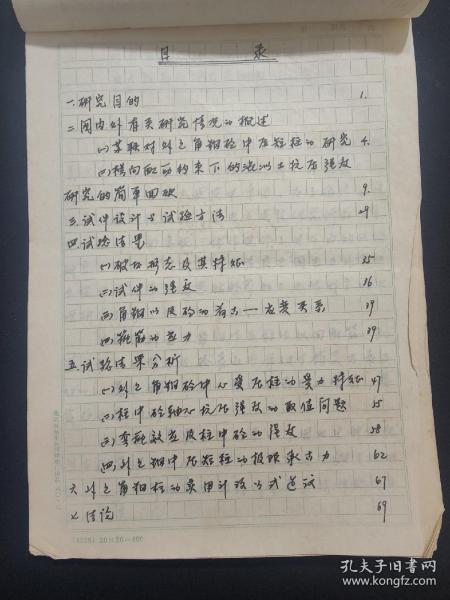 目 录
一.研究目的 1.
二.国内外有关研究情况的概述
(一)苏联对外包角钢砼中压短柱的研究 4.
(二)横向配筋约束下的混凝土抗压强度
研究的简单回顾 9.
三.试件设计与试验方法 29
四.试验结果
(一)破坏形态及其特征 35
(二)试件的强度 36
(三)角钢以及砼的着力—应变关系 39
(四)箍筋的应力 39
五.试验结果分析
(一)外包角钢砼中心受压柱的受力特征 47
(二)柱中砼轴心抗压强度的取值问题 55
(三)套箍效应及柱中砼的强度 58
(四)外包钢中压短柱的极限承载力 62
六.外包角钢柱的实用计算公式建议 67
七.结论 69
20×20=400
孔夫子旧书网
www.kongfz.com